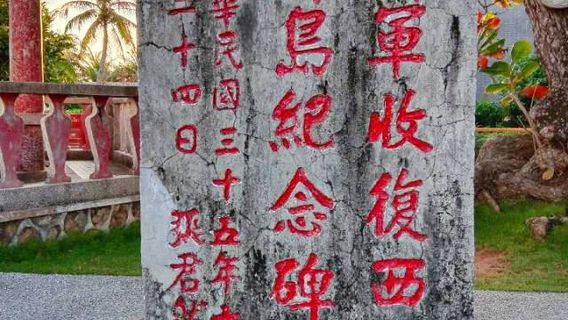 軍收復西
島紀念碑
華民國三十五年十
二十四日 張君